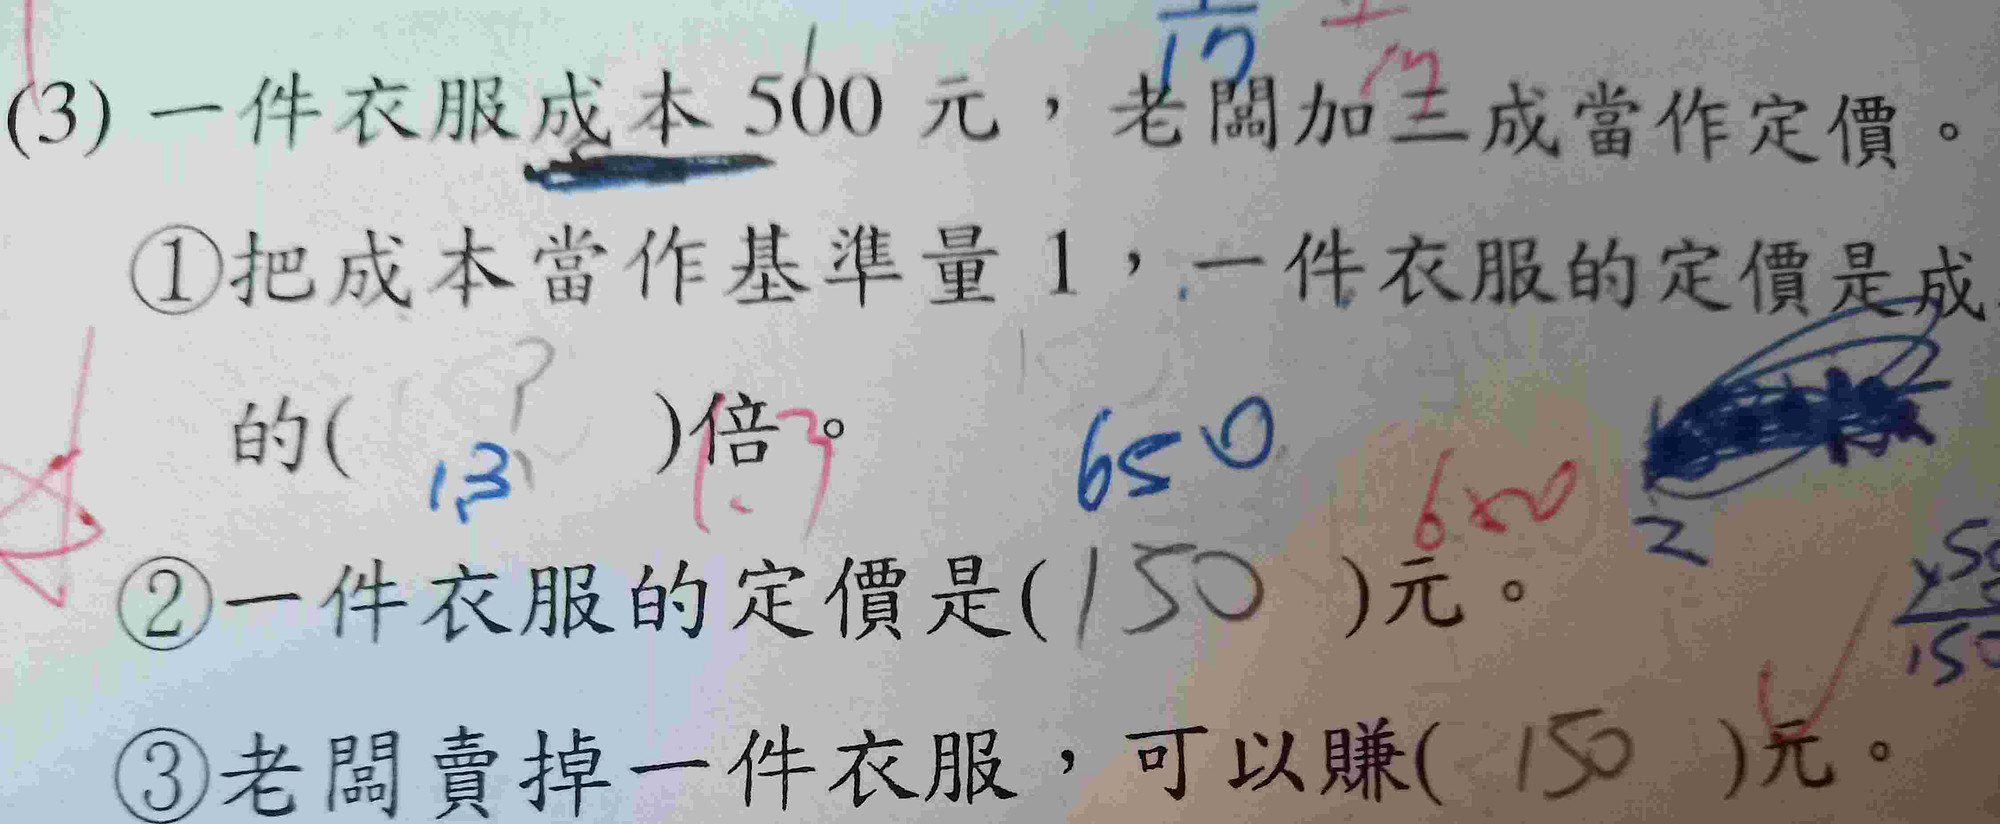 17 17
(3) 一件衣服成本 500 元，老闆加三成當作定價。
①把成本當作基準量 1，一件衣服的定價是成
的( ? 1.3 )倍。 1.3
650 600
2
②一件衣服的定價是(150)元。
×50
150
③老闆賣掉一件衣服，可以賺(150)元。